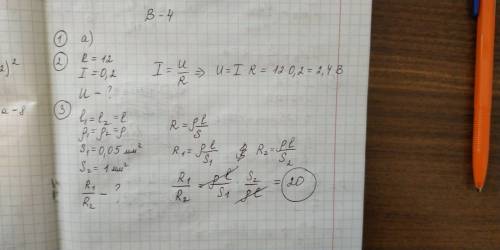 В-4
① а)
② R = 12
I = 0,2
U - ?
I = U/R ⇒ U = I R = 12·0,2 = 2,4 В
③ l₁ = l₂ = l
ρ₁ = ρ₂ = ρ
S₁ = 0,05 мм²
S₂ = 1 мм²
R₁/R₂ - ?
R = ρl/S
R₁ = ρl/S₁ R₂ = ρl/S₂
R₁/R₂ = ρl/S₁ S₂/ρl = 20
)²
a - 8